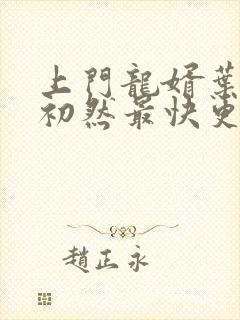 上門龍婿葉
初然最快更
趙正永